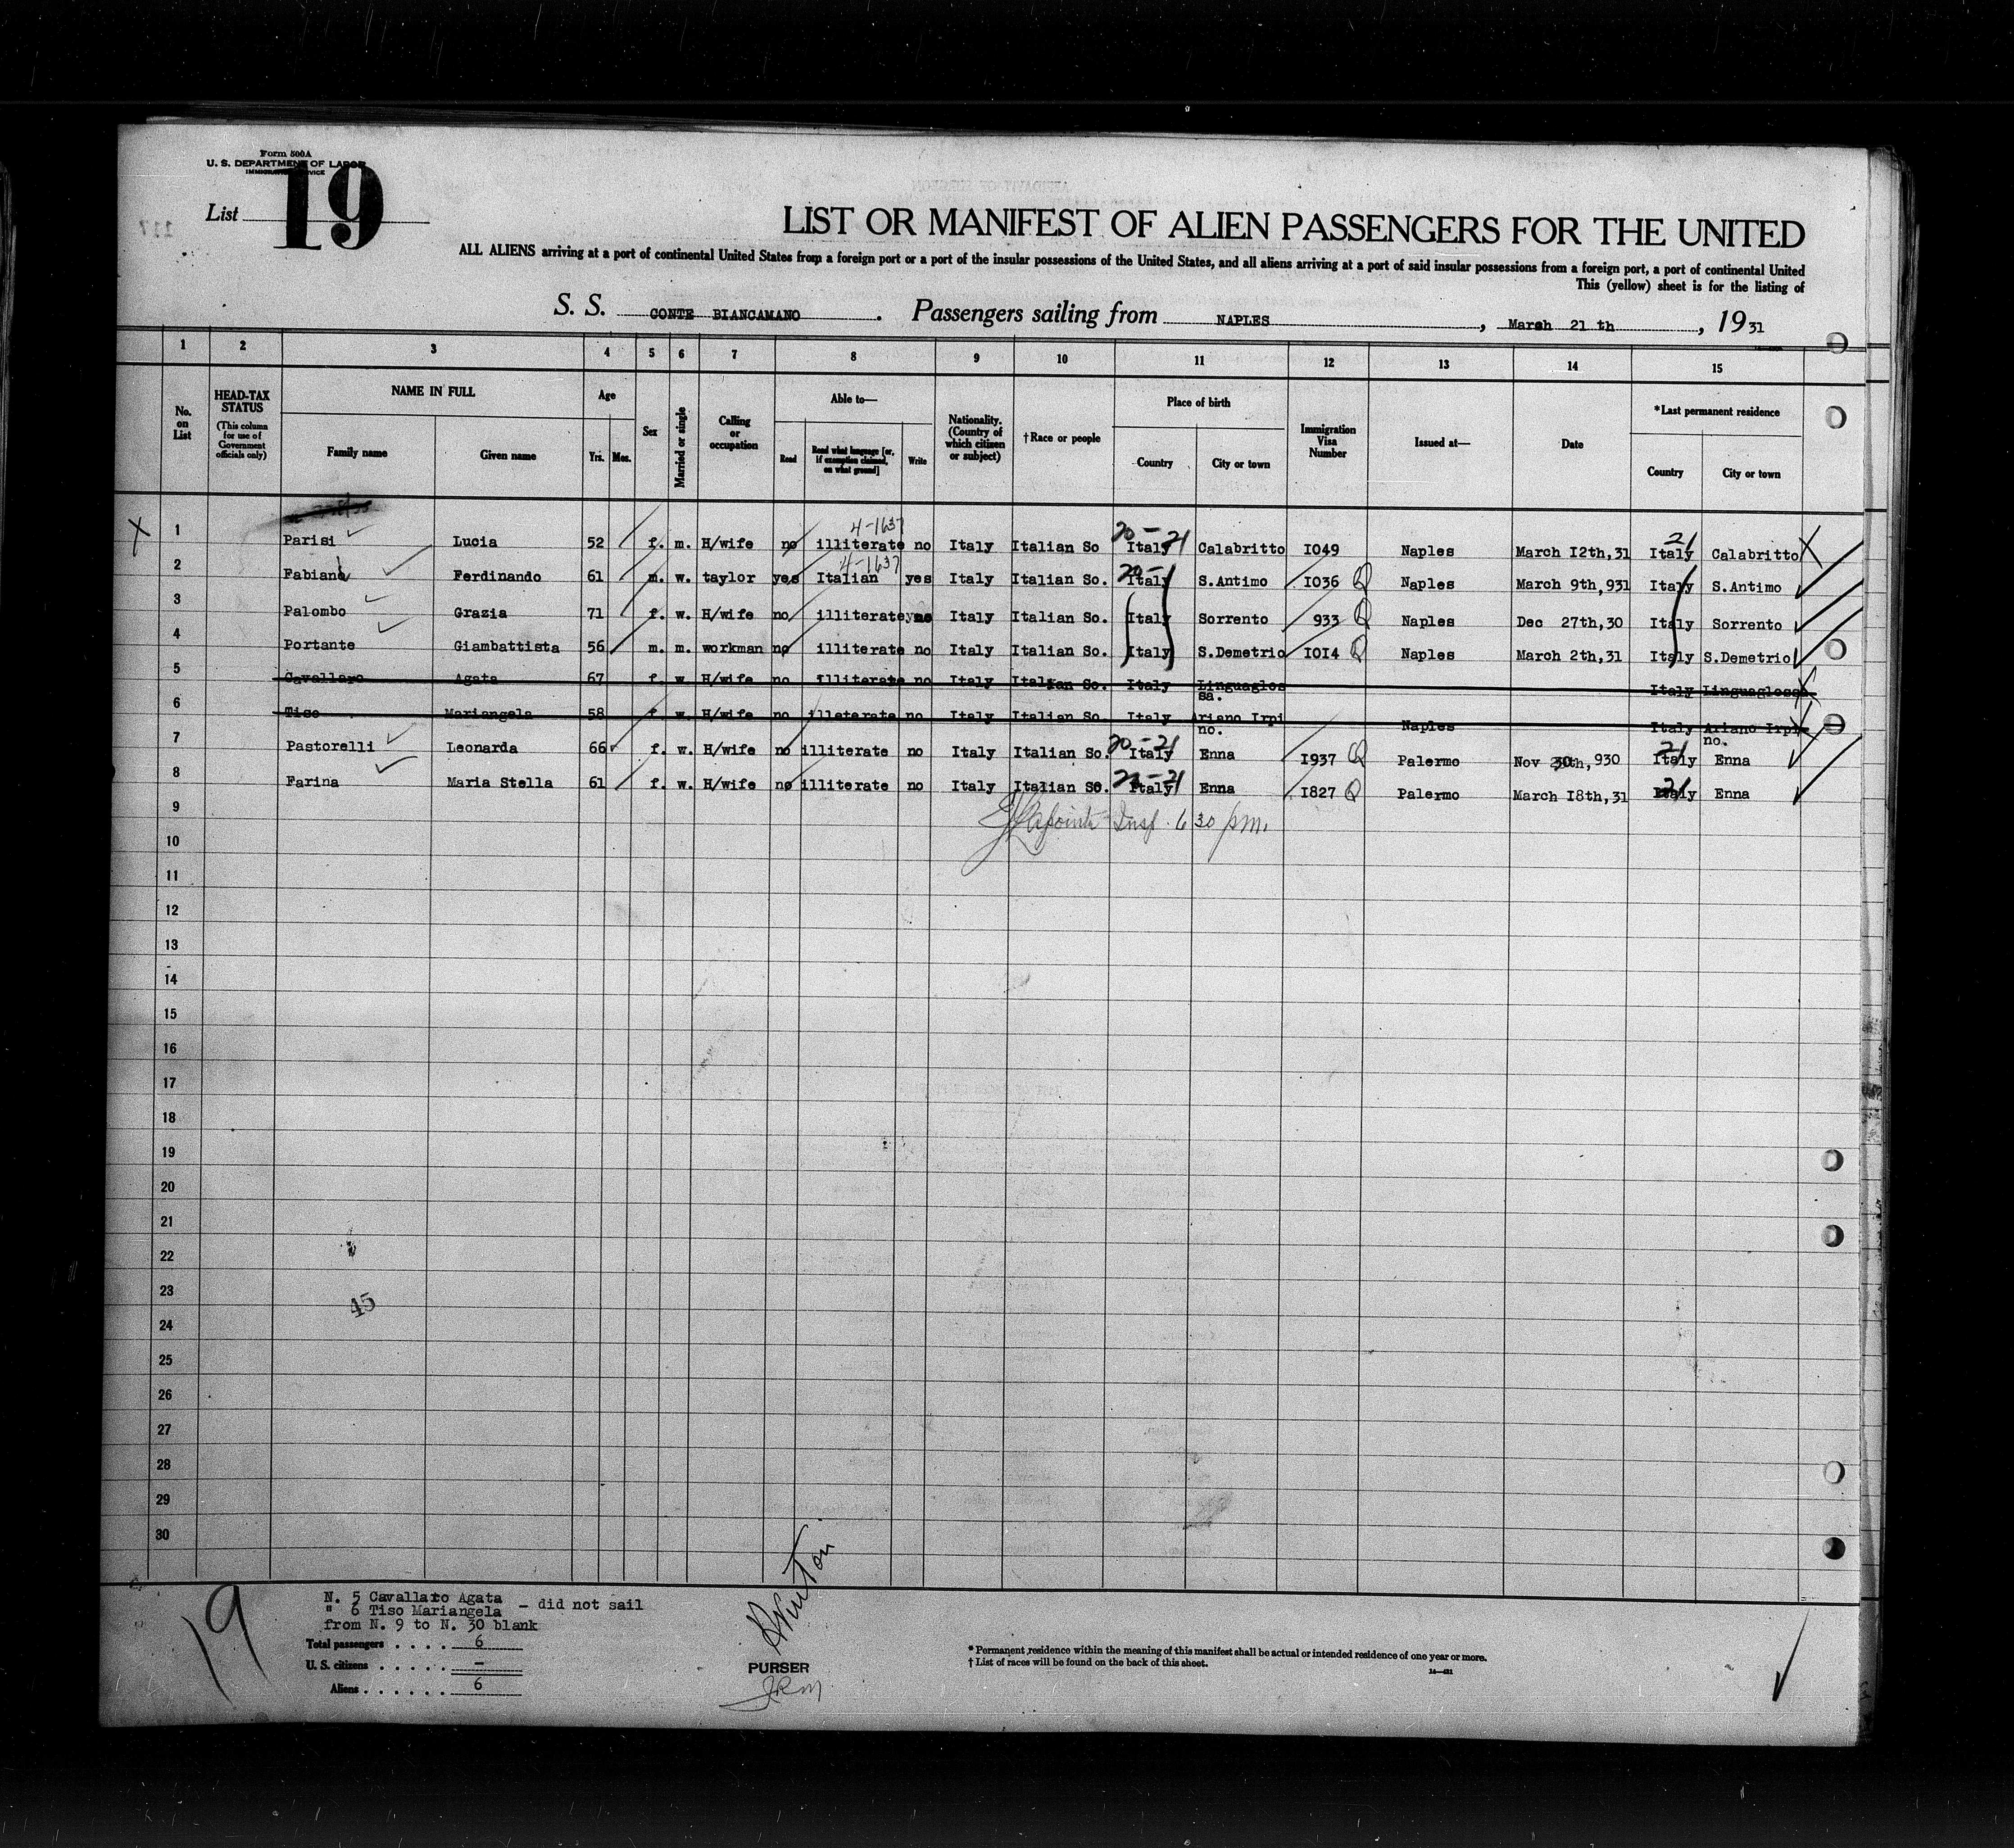 Form 500A
U. S. DEPARTMENT OF LABOR
IMMIGRATION SERVICE
List 19
LIST OR MANIFEST OF ALIEN PASSENGERS FOR THE UNITED
ALL ALIENS arriving at a port of continental United States from a foreign port or a port of the insular possessions of the United States, and all aliens arriving at a port of said insular possessions from a foreign port, a port of continental United
This (yellow) sheet is for the listing of
S. S. CONTE BIANCAMANO. Passengers sailing from NAPLES, March 21 th, 1931
1 2 3 4 5 6 7 8 9 10 11 12 13 14 15
No. on List
HEAD-TAX STATUS (This column for use of Government officials only)
NAME IN FULL
Family name Given name
Age
Yrs. Mos.
Sex
Married or single
Calling or occupation
Able to—
Read Read what language [or, if exemption claimed, on what ground] Write
Nationality. (Country of which citizen or subject)
†Race or people
Place of birth
Country City or town
Immigration Visa Number
Issued at—
Date
*Last permanent residence
Country City or town
4-1637 20-21 21
1 Parisi Lucia 52 f. m. H/wife no illiterate no Italy Italian So Italy Calabritto 1049 Naples March 12th,31 Italy Calabritto X
4-1637
2 Fabiano Ferdinando 61 m. w. taylor yes Italian yes Italy Italian So. Italy S.Antimo 1036 Q Naples March 9th,931 Italy S.Antimo
3 Palombo Grazia 71 f. w. H/wife no illiterate no Italy Italian So. Italy Sorrento 933 Q Naples Dec 27th,30 Italy Sorrento
4 Portante Giambattista 56 m. m. workman no illiterate no Italy Italian So. Italy S.Demetrio 1014 Q Naples March 2th,31 Italy S.Demetrio
5 Cavallaro Agata 67 f. w. H/wife no illiterate no Italy Italian So. Italy Linguaglossa. Italy Linguaglossa
6 Tiso Mariangela 58 f. w. H/wife no illeterate no Italy Italian So. Italy Ariano Irpino. Naples Italy Ariano Irpino.
20-21 21
7 Pastorelli Leonarda 66 f. w. H/wife no illiterate no Italy Italian So. Italy Enna 1937 Q Palermo Nov 30th,930 Italy Enna
21
8 Farina Maria Stella 61 f. w. H/wife no illiterate no Italy Italian So. Italy Enna 1827 Q Palermo March 18th,31 Italy Enna
Insp. 6 30 pm.
9
10
11
12
13
14
15
16
17
18
19
20
21
22
23
45
24
25
26
27
28
29
30
19
N. 5 Cavallaro Agata
" 6 Tiso Mariangela - did not sail
from N. 9 to N. 30 blank
Total passengers . . . . 6
U. S. citizens . . . . . —
Aliens . . . . . . 6
PURSER
* Permanent residence within the meaning of this manifest shall be actual or intended residence of one year or more.
† List of races will be found on the back of this sheet.